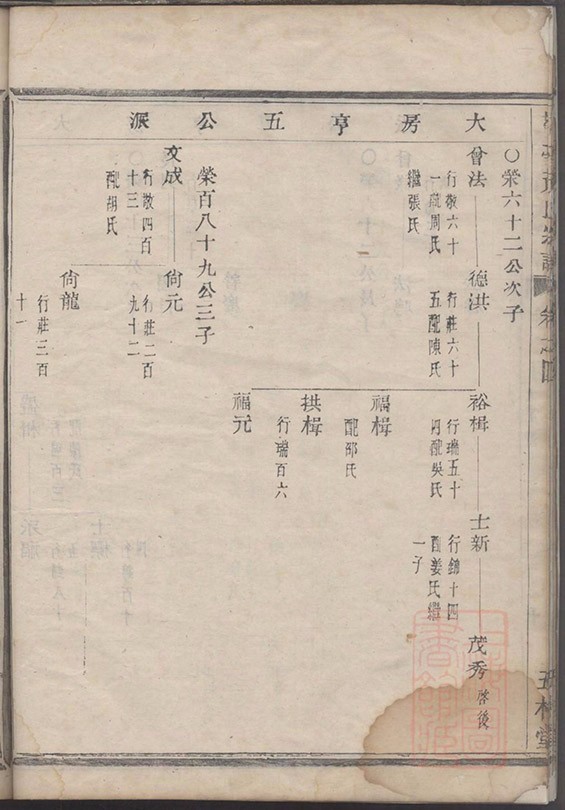 大房亨五公派
○榮六十二公次子
曾法
行敬六十
一配周氏
繼張氏
德洪
行莊六十
五配陳氏
裕楫
行瑞五十
四配吳氏
士新
行錦十四
配姜氏繼
一子
茂秀
啓後
福楫
配邵氏
拱楫
行瑞百六
福元
榮百八十九公三子
文成
行敬四百
十三
配胡氏
尙元
行莊二百
九十二
尙龍
行莊三百
十一
宗譜
卷之四
堂